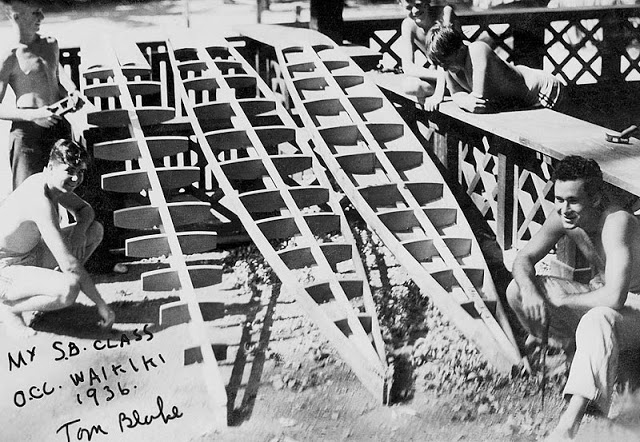 MY S.B. CLASS
O.C.C. WAIKIKI
1936.
Tom Blake